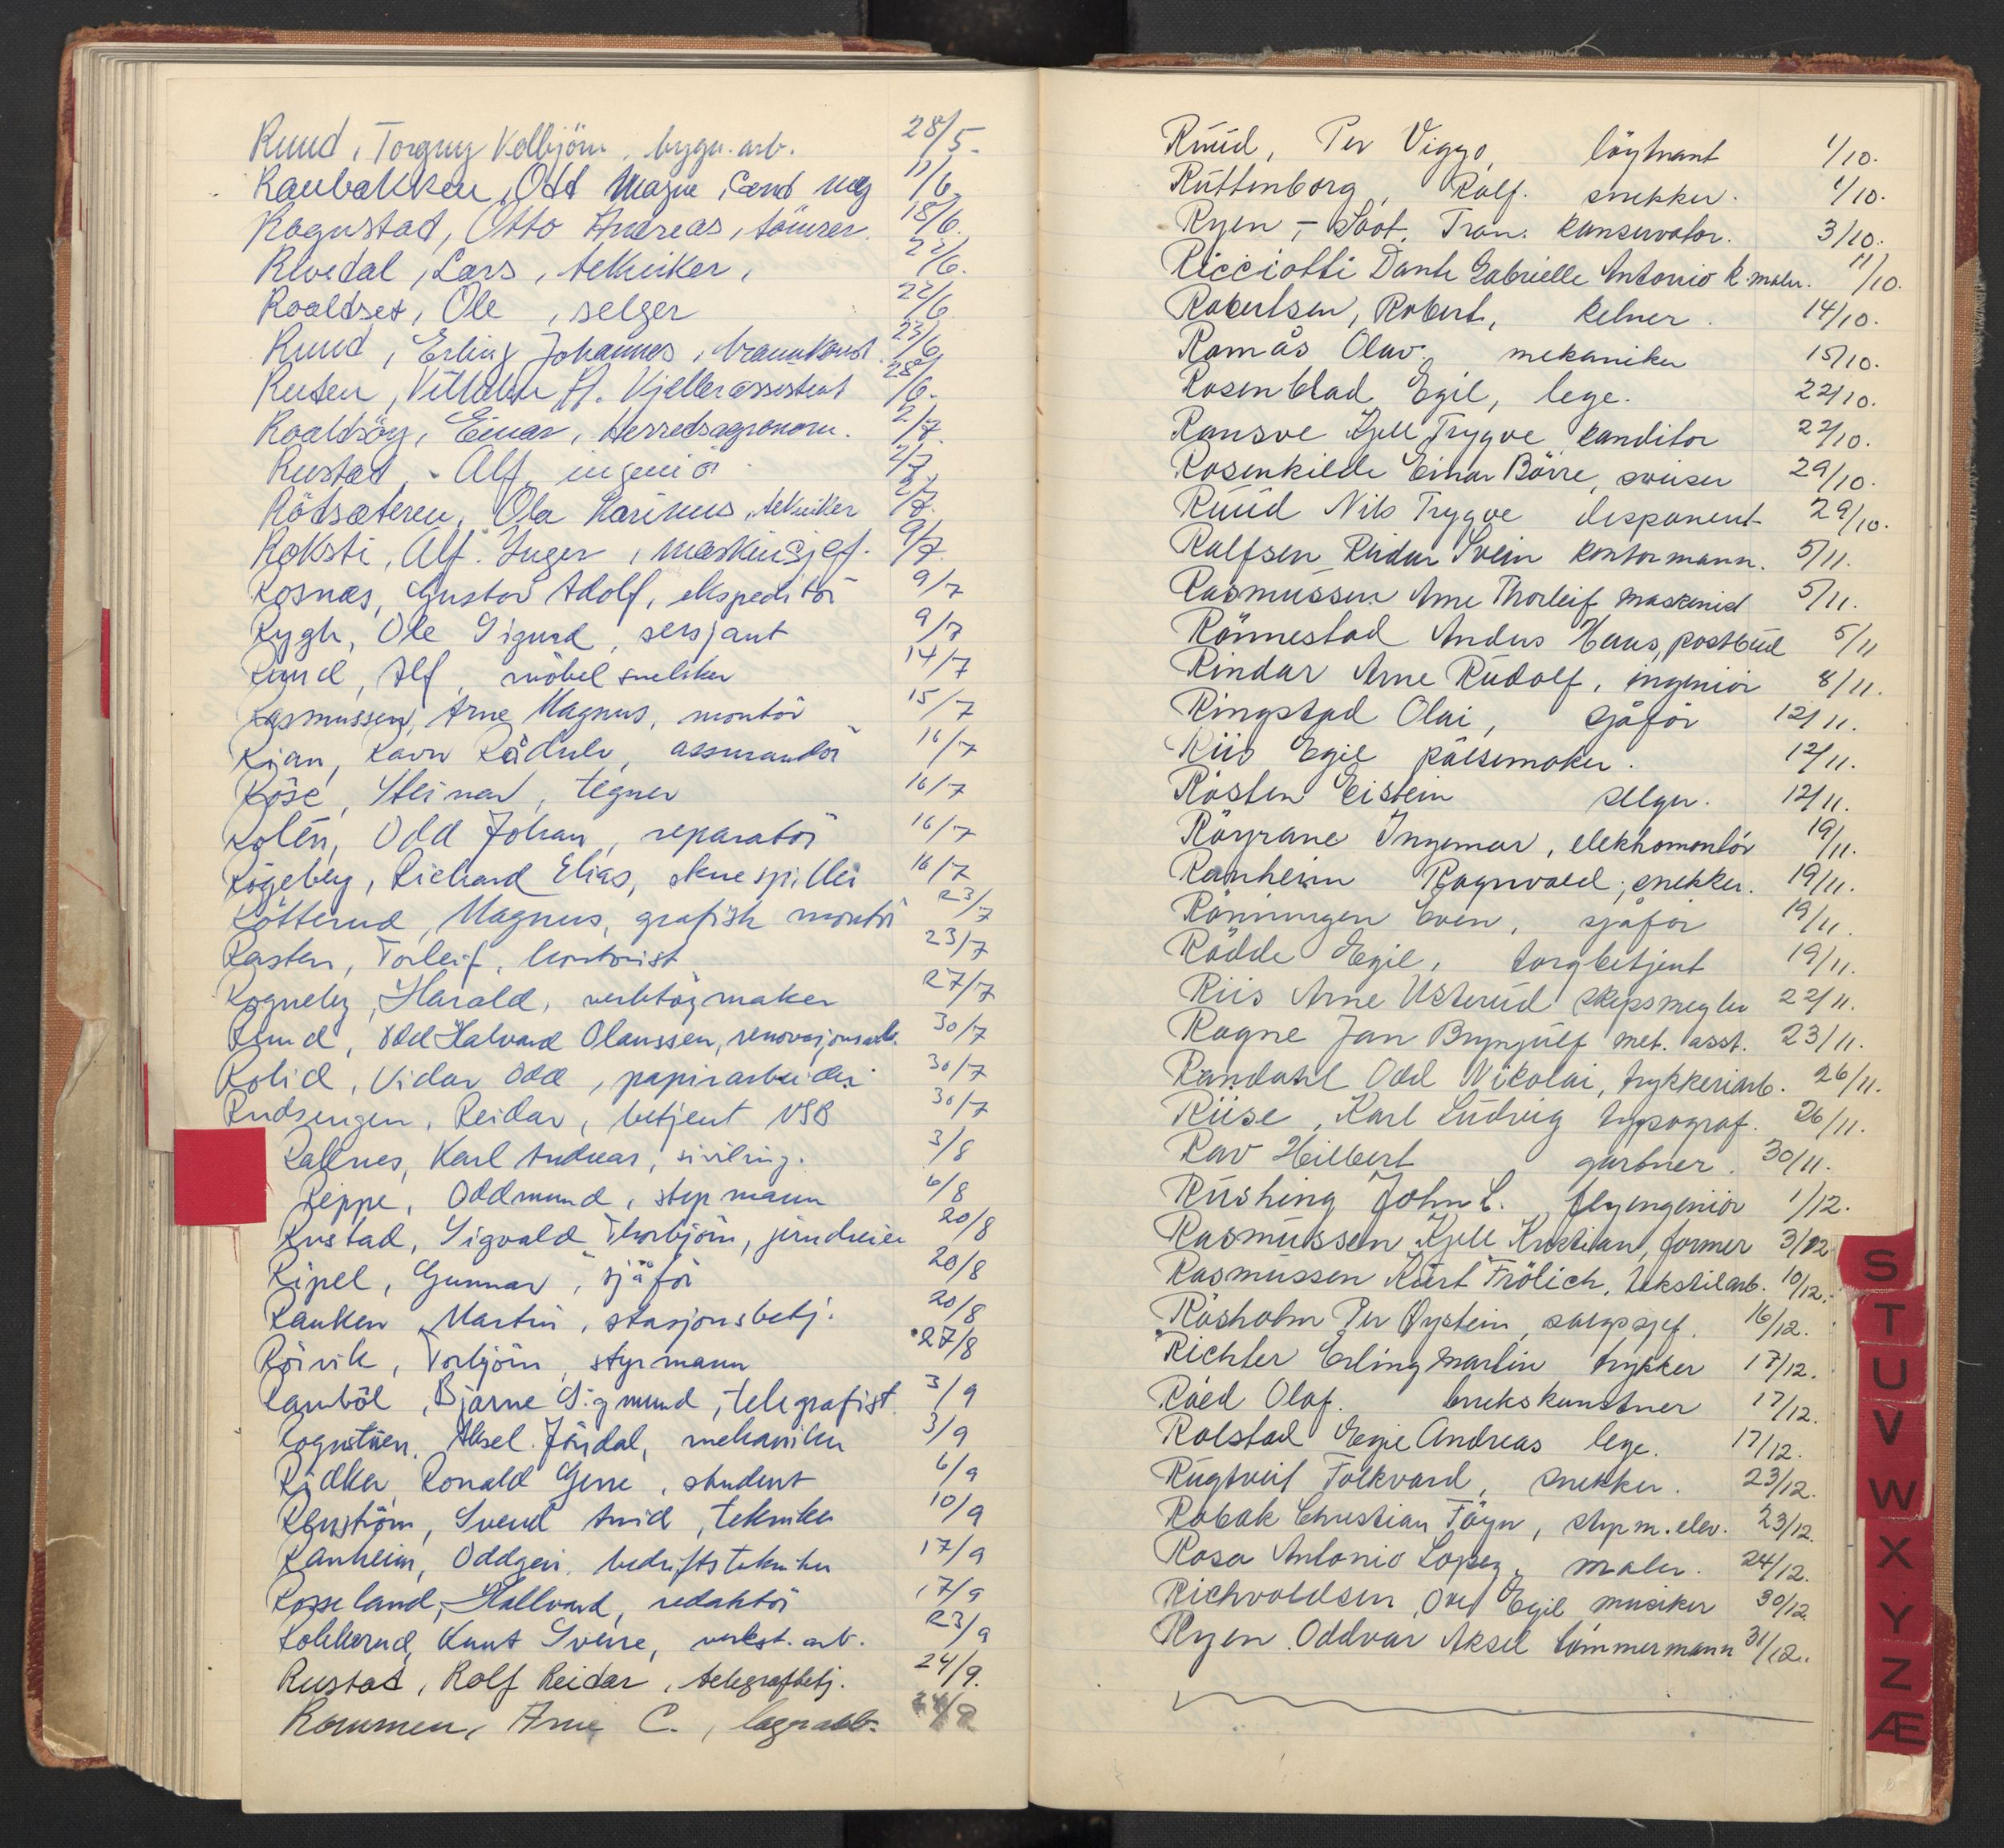 Ruud, Torgny Kolbjörn, bygn. arb. 28/5.
Raubakken, Odd Magne, cand mag 11/6.
Rognstad, Otto Andreas, tömrer. 18/6.
Rivedal, Lars, tekniker, 22/6.
Roaldset, Ole, selger 22/6
Ruud, Erling Johannes, brannkonst. 23/6
Reusen, Vilhelm H. Kjellerassistent 28/6.
Roaldsöy, Einar, Herredsagronom. 2/7.
Rustad, Alf, ingeniör 2/7.
Rödsæteren, Ola Marinus, tekniker 2/7.
Roksti, Alf. Inger, maskinsjef. 9/7
Rosnæs, Gustav Adolf, ekspeditör 9/7
Rygh, Ole Sigurd, sersjant 9/7
Ruud, Alf, möbelsnekker 14/7
Rasmussen, Arne Magnus, montör 15/7
Rian, Ravn Rådulv, assurandör 16/7
Röse, Steinar, tegner 16/7
Rolén, Odd Johan, reparatör 16/7
Rögeberg, Richard Elias, skuespiller 16/7
Rötterud, Magnus, grafisk montör 23/7
Rasten, Torleif, kontorist 23/7
Rogneby, Harald, verktöymaker 27/7
Ruud, Odd Halvard Olaussen, renovasjonsarb. 30/7
Rolid, Vidar Odd, papirarbeider 30/7
Rudsengen, Reidar, betjent NSB 30/7
Raknes, Karl Andreas, siviling. 3/8
Reppe, Oddmund, styrmann 6/8
Rustad, Sigvald Thorbjörn, jerndreier 20/8
Ripel, Gunnar, sjåför 20/8
Ranken, Martin, stasjonsbetj. 20/8
Röivik, Torbjörn, styrmann 27/8
Ramböl, Bjarne Sigmund, telegrafist 3/9
Rognstuen, Aksel Jöndal, mekaniker 3/9
Ridker, Ronald Gene, student 6/9
Renström, Svend Arvid, tekniker 10/9
Ranheim, Oddgeir, bedriftstekniker 17/9
Rosseland, Hallvard, redaktör 17/9
Rokkerud, Knut Sverre, verkst. arb. 23/9
Rustad, Rolf Reidar, telegrafbetj. 24/9.
Rommen, Arne C., lagerarb. 24/9
Ruud, Per Viggo, löytnant 1/10.
Ruttenborg, Rolf. snekker. 1/10.
Ryen, - Soot, Tran. konservator. 3/10.
Ricciotti Dante Gabrielle Antonio k. maler. 11/10.
Robertsen, Robert, kelner. 14/10.
Romås Olav. mekaniker 15/10.
Rosenblad Egil, lege. 22/10.
Ransve Kjell Trygve kanditor 22/10.
Rosenkilde Einar Börre, sveiser 29/10.
Ruud Nils Trygve disponent 29/10.
Rolfsen Reidar Svein kontormann. 5/11.
Rasmussen Arne Thorleif maskinist 5/11.
Rönnestad Anders Hans, postbud 5/11
Rindar Arne Rudolf, ingeniör 8/11.
Ringstad Olai, sjåför 12/11.
Riis Egil pölsemaker. 12/11.
Rösten Eistein selger. 12/11.
Röyrane Ingemar, elektromontör 19/11.
Ranheim Ragnvald, snekker. 19/11.
Rönningen Even, sjåför 19/11.
Rödde Egil, torgbetjent 19/11.
Riis Arne Usterud skipsmegler 22/11.
Rogne Jan Brynjulf met. asst. 23/11.
Randahl Odd Nikolai, trykkeriarb. 26/11.
Riise, Karl Ludvig typograf. 26/11.
Rav Hilbert gartner. 30/11.
Rushing John L. flyingeniör 1/12.
Rasmussen Kjell Kristian, former 3/12
Rasmussen Kurt Frölich, tekstilarb. 10/12.
Rösholm Per Øystein, salgssjef. 16/12.
Richter Erling Martin trykker 17/12.
Röed Olaf. brukskunstner 17/12.
Rolstad Egil Andreas lege. 17/12.
Rugtveit Folkvard, snekker. 23/12.
Robak Christian Föyn, styrm. elev. 23/12.
Rosa Antonio Lopez, maler. 24/12.
Richvoldsen, Ove Egil musiker 30/12.
Ryen Oddvar Aksel tömmermann 31/12.
S
T
U
V
W
X
Y
Z
Æ